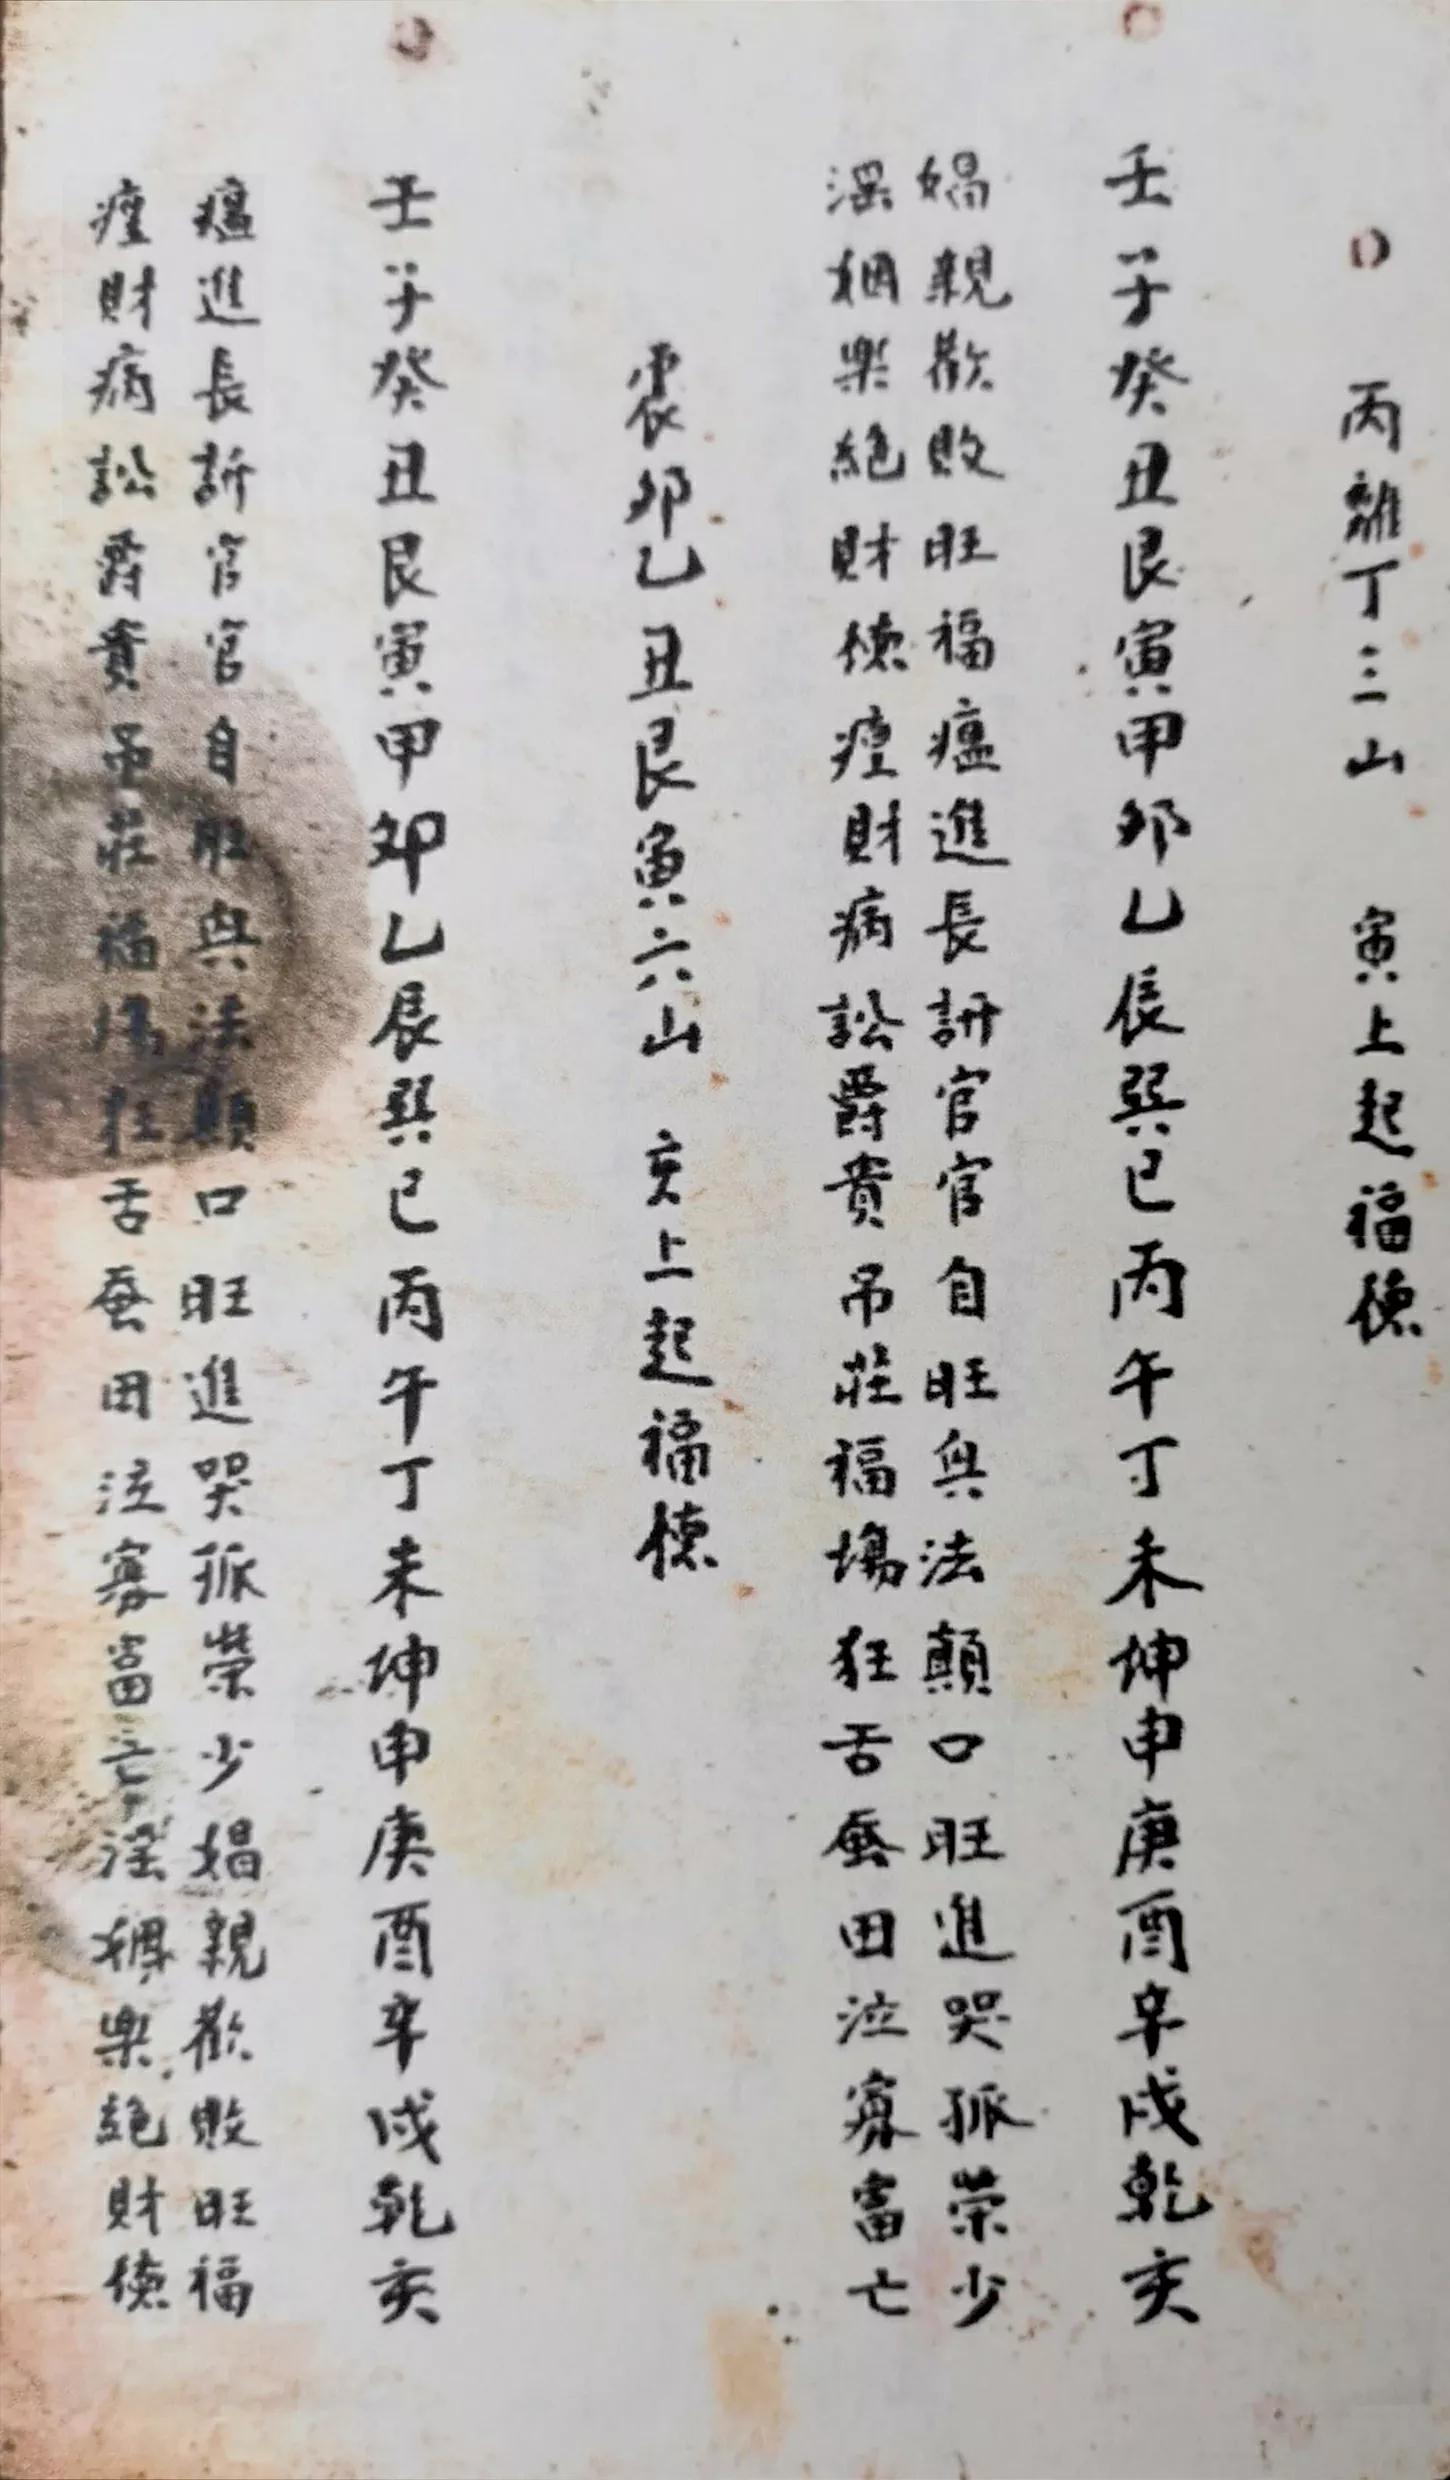 丙離丁三山 寅上起福德
壬子癸丑艮寅甲卯乙辰巽巳丙午丁未坤申庚酉辛戌乾亥
娼親歡敗旺福瘟進長訴官官自旺興法顛口旺進哭孤榮少
淫姻樂絕財德財病訟爵貴吊莊福場狂舌蚕田泣寡富亡
震卯乙丑艮寅六山 亥上起福德
壬子癸丑艮寅甲卯乙辰巽巳丙午丁未坤申庚酉辛戌乾亥
瘟進長訴官官自旺興法顛口旺進哭孤榮少娼親歡敗旺福
財病訟爵貴吊莊福場狂舌蚕田泣寡富亡淫姻樂絕財德